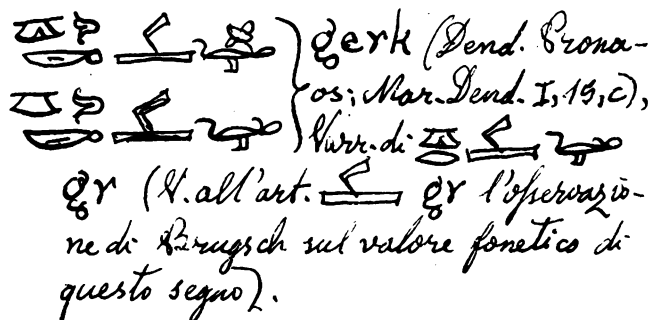 gerk (Dend. Prona-
os; Mar. Dend. I, 15, c),
Varr. di
gr (V. all'art. gr l'osservazio-
ne di Brugsch sul valore fonetico di
questo segno).